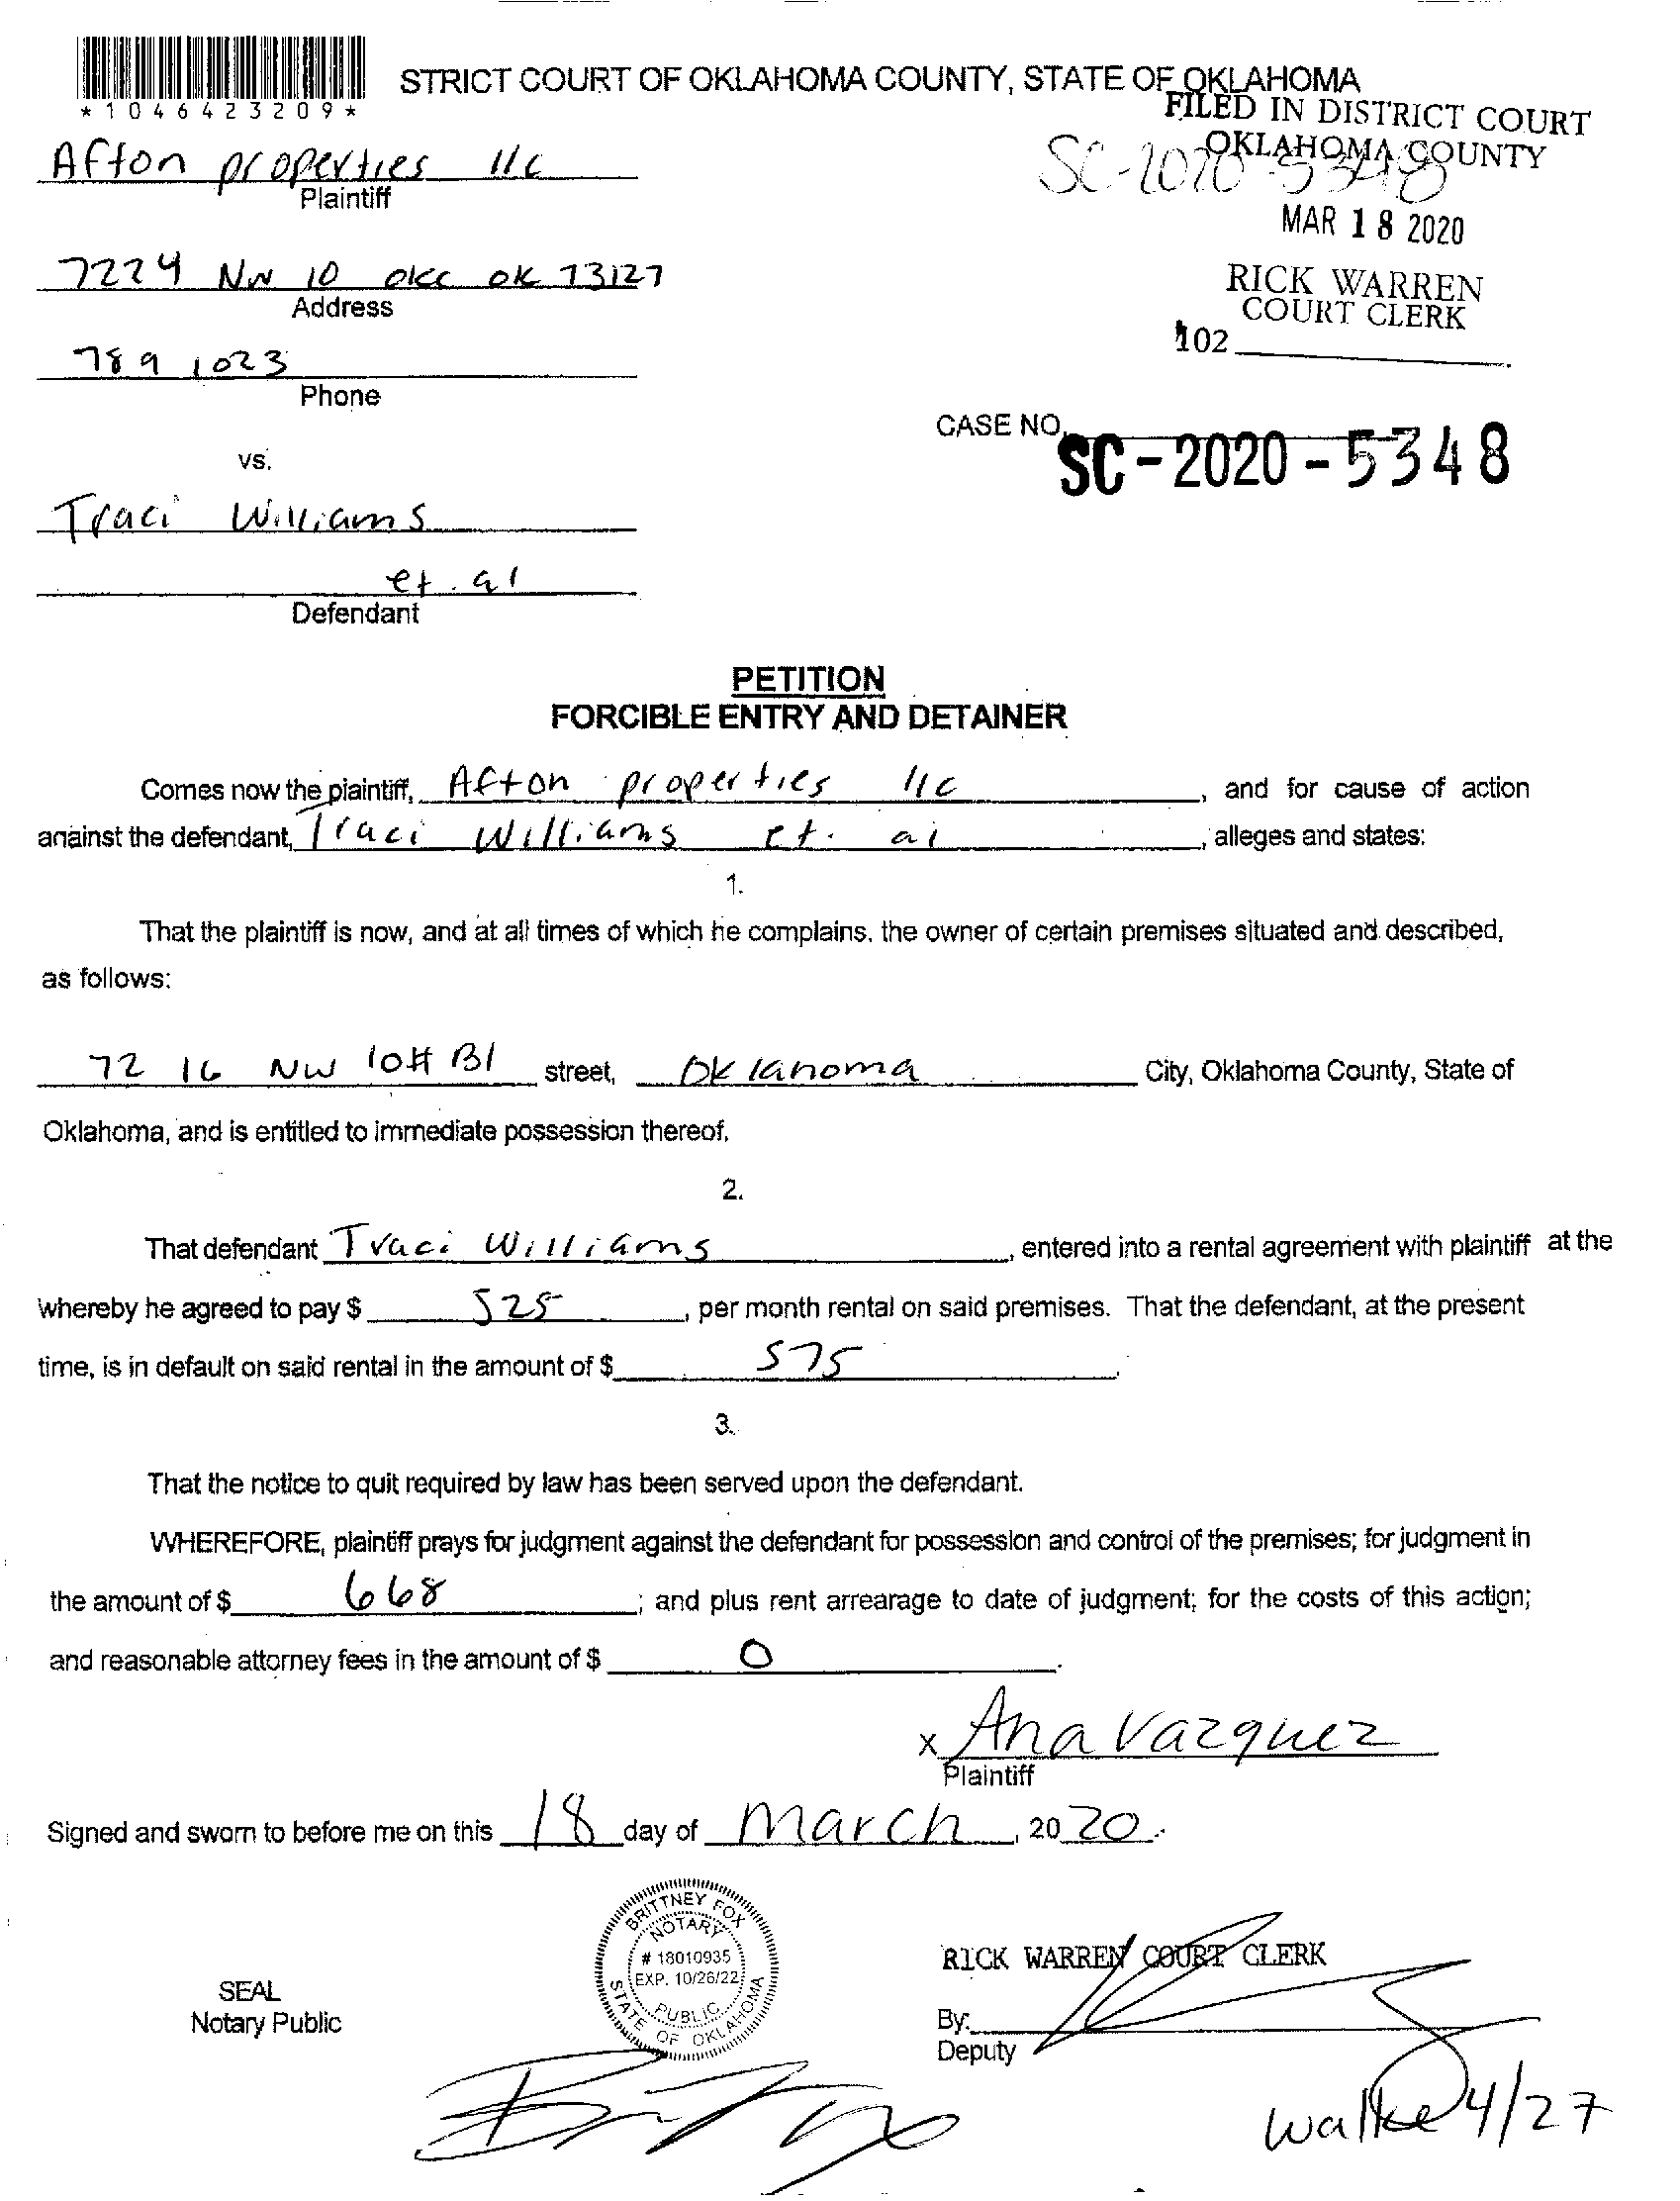 STRICT COURT OF OKLAHOMA COUNTY, STATE OF OKLAHOMA
*1046423209*
FILED IN DISTRICT COURT
OKLAHOMA COUNTY
SC-2020-5348
Afton properties llc
Plaintiff
MAR 18 2020
7224 NW 10 okc ok 73127
Address
RICK WARREN
COURT CLERK
102
789 1023
Phone
CASE NO.
SC-2020-5348
vs.
Traci Williams
et. al
Defendant
PETITION
FORCIBLE ENTRY AND DETAINER
Comes now the plaintiff, Afton properties llc, and for cause of action
against the defendant, Traci Williams et. al, alleges and states:
1.
That the plaintiff is now, and at all times of which he complains, the owner of certain premises situated and described,
as follows:
7216 NW 10# B1 street, Oklahoma City, Oklahoma County, State of
Oklahoma, and is entitled to immediate possession thereof.
2.
That defendant Traci Williams, entered into a rental agreement with plaintiff at the
whereby he agreed to pay $ 525, per month rental on said premises. That the defendant, at the present
time, is in default on said rental in the amount of $ 575.
3.
That the notice to quit required by law has been served upon the defendant.
WHEREFORE, plaintiff prays for judgment against the defendant for possession and control of the premises; for judgment in
the amount of $ 668; and plus rent arrearage to date of judgment; for the costs of this action;
and reasonable attorney fees in the amount of $ 0.
x Ana Vazquez
Plaintiff
Signed and sworn to before me on this 18 day of March, 2020.
BRITTNEY FOX
NOTARY
# 18010935
EXP. 10/26/22
PUBLIC
STATE OF OKLAHOMA
SEAL
Notary Public
RICK WARREN COURT CLERK
By:
Deputy
walke 4/27